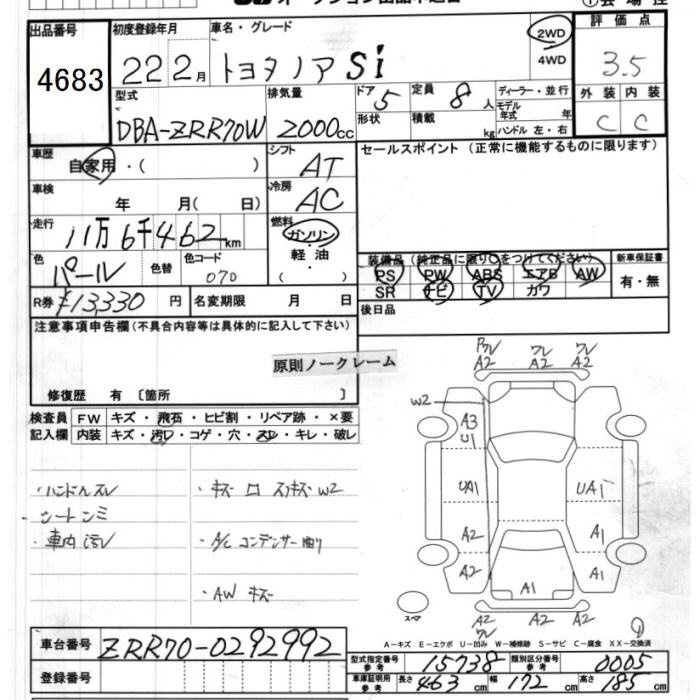 ①会場控
出品番号 初度登録年月 車名・グレード 2WD 評価点
4683 22 2月 トヨタ ノア Si 4WD 3.5
型式 排気量 ドア 定員 ディーラー・並行 外装 内装
DBA-ZRR70W 2000cc 5 8人 モデル年式 年 C C
形状 積載 kg ハンドル 左・右
車歴 シフト セールスポイント (正常に機能するものに限ります)
自家用・( ) AT
車検 冷房
年 月( 日) AC
走行 燃料
11万6千462km ガソリン・軽油
色 色替 色コード 装備品(純正品に限り○をつけてください) 新車保証書
パール 070 PS PW ABS エアB AW 有・無
R券 ¥13,330円 名変期限 月 日 SR ナビ TV カワ
後日品
注意事項申告欄(不具合内容等は具体的に記入して下さい)
原則ノークレーム
修復歴 有 〔箇所 〕
検査員 FW キズ・飛石・ヒビ割・リペア跡・×要
記入欄 内装 キズ・汚レ・コゲ・穴・スレ・キレ・破レ
・ハンドルスレ
・シートシミ
・車内汚レ
・キズ ロ スリキズ W2
・A/C コンデンサー曲り
・AW キズ
A2 A2 A2
ワレ ワレ
W2
A3
U1
UA1 UA1
A2 A1
A2 A1 A1
スペア
A2 A2 A2
ワレ
A-キズ E-エクボ U-凹み W-補修跡 S-サビ C-腐食 XX-交換済
車台番号 ZRR70-0292992
登録番号
型式指定番号参考 15738 類別区分番号参考 0005
車庫証明用参考 長さ 463cm 幅 172cm 高さ 185cm